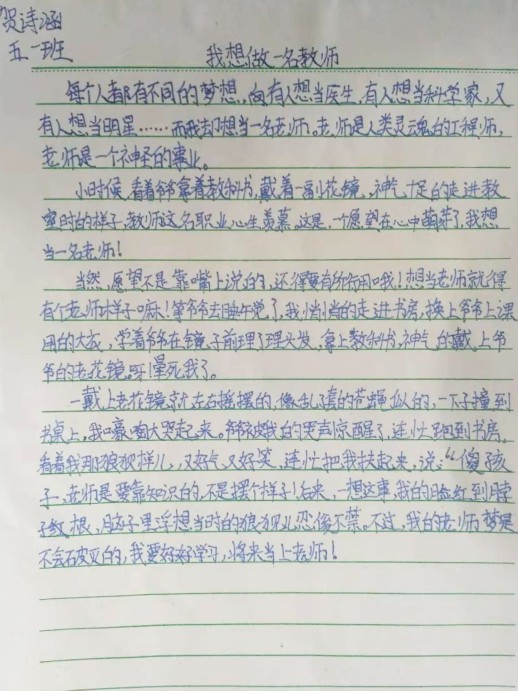 贺诗涵
五一班
我想做一名教师
每个人都有不同的梦想,有人想当医生,有人想当科学家,又
有人想当明星……而我却想当一名老师。老师是人类灵魂的工程师,
老师是一个神圣的事业。
小时候,看着爷爷拿着教科书,戴着一副花镜,神气十足的走进教
室时的样子,教师这名职业,心生羡慕,这是,一个愿望在心中萌芽了,我想
当一名老师!
当然,愿望不是靠嘴上说的,还得要有所行动哦!想当老师就得
有个老师样子嘛!等爷爷去睡午觉了,我悄悄的走进书房,换上爷爷上课
用的大衣,学着爷爷在镜子前理了理头发,拿上教科书,神气的戴上爷
爷的老花镜。呀!晕死我了。
一戴上老花镜就左右摇摆的,像乱了套的苍蝇似的,一下子撞到
书桌上,我嚎啕大哭起来。爷爷被我的哭声惊醒了,连忙跑到书房,
看着我那狼狈样儿,又好气又好笑,连忙把我扶起来,说:“傻孩
子,老师是要靠知识的,不是摆个样子!后来,一想这事,我的脸红到脖
子红根,脑子里浮想当时的狼狈,忍俊不禁。不过,我的老师梦是
不会破灭的,我要好好学习,将来当上老师!